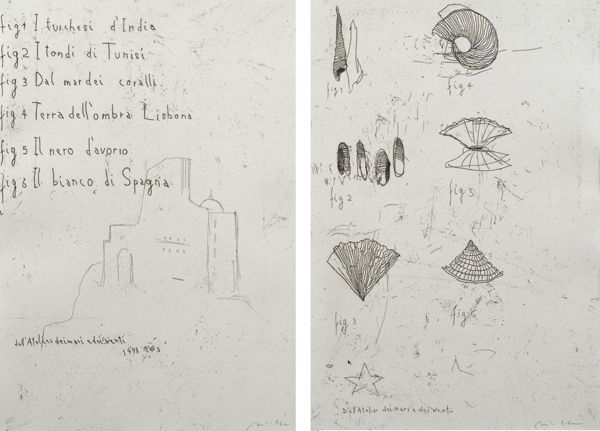 fig 1 I turchesi d'India
fig 2 I tondi di Tunisi
fig 3 Dal mar dei coralli
fig 4 Terra dell'ombra Lisbona
fig 5 Il nero d'avorio
fig 6 Il bianco di Spagna
dall'Atlante dei mari e dei venti
fig 1
fig 4
fig 2
fig 5
fig 3
fig 6
Dall'Atlante dei mari e dei venti